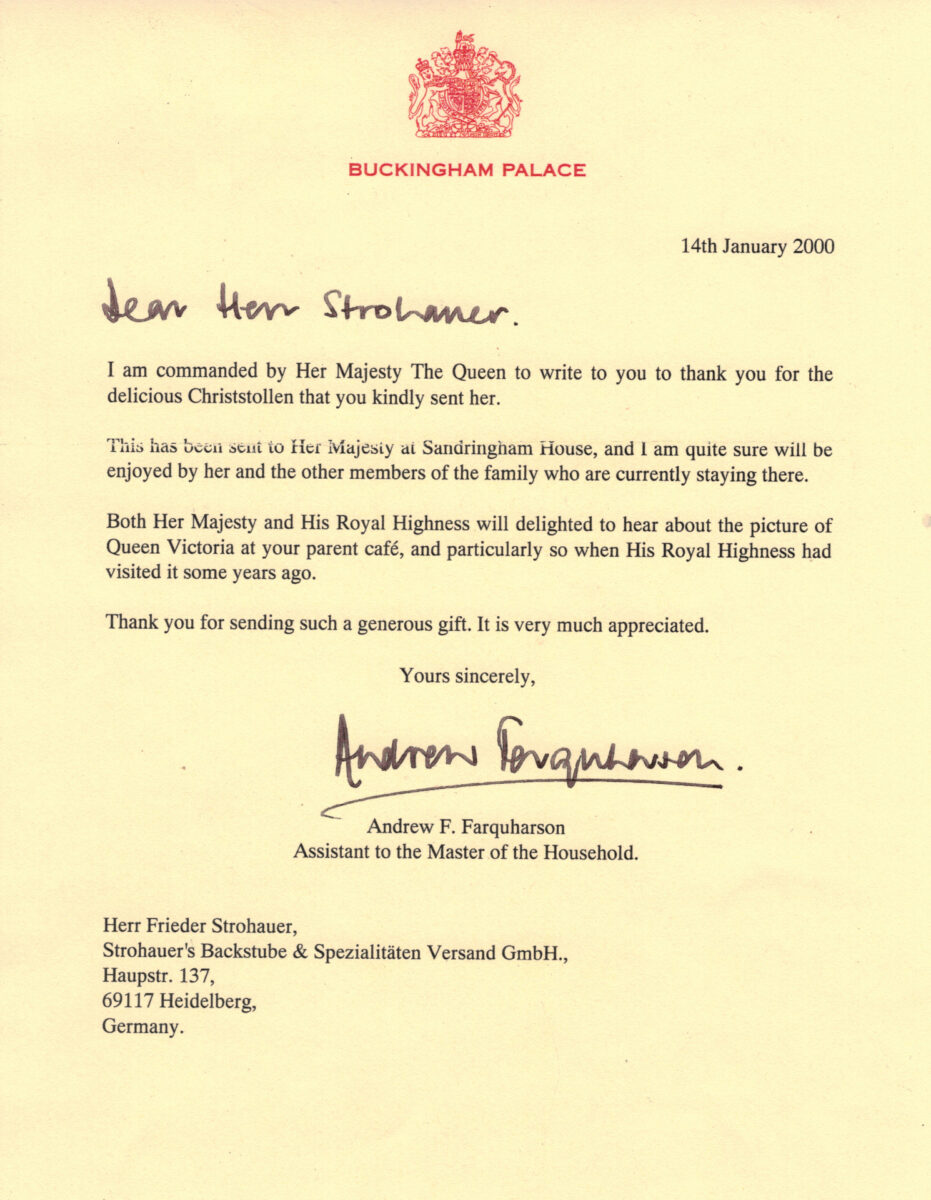 BUCKINGHAM PALACE
14th January 2000
Dear Herr Strohauer.
I am commanded by Her Majesty The Queen to write to you to thank you for the
delicious Christstollen that you kindly sent her.
This has been sent to Her Majesty at Sandringham House, and I am quite sure will be
enjoyed by her and the other members of the family who are currently staying there.
Both Her Majesty and His Royal Highness will delighted to hear about the picture of
Queen Victoria at your parent café, and particularly so when His Royal Highness had
visited it some years ago.
Thank you for sending such a generous gift. It is very much appreciated.
Yours sincerely,
Andrew Farquharson.
Andrew F. Farquharson
Assistant to the Master of the Household.
Herr Frieder Strohauer,
Strohauer's Backstube & Spezialitäten Versand GmbH.,
Haupstr. 137,
69117 Heidelberg,
Germany.